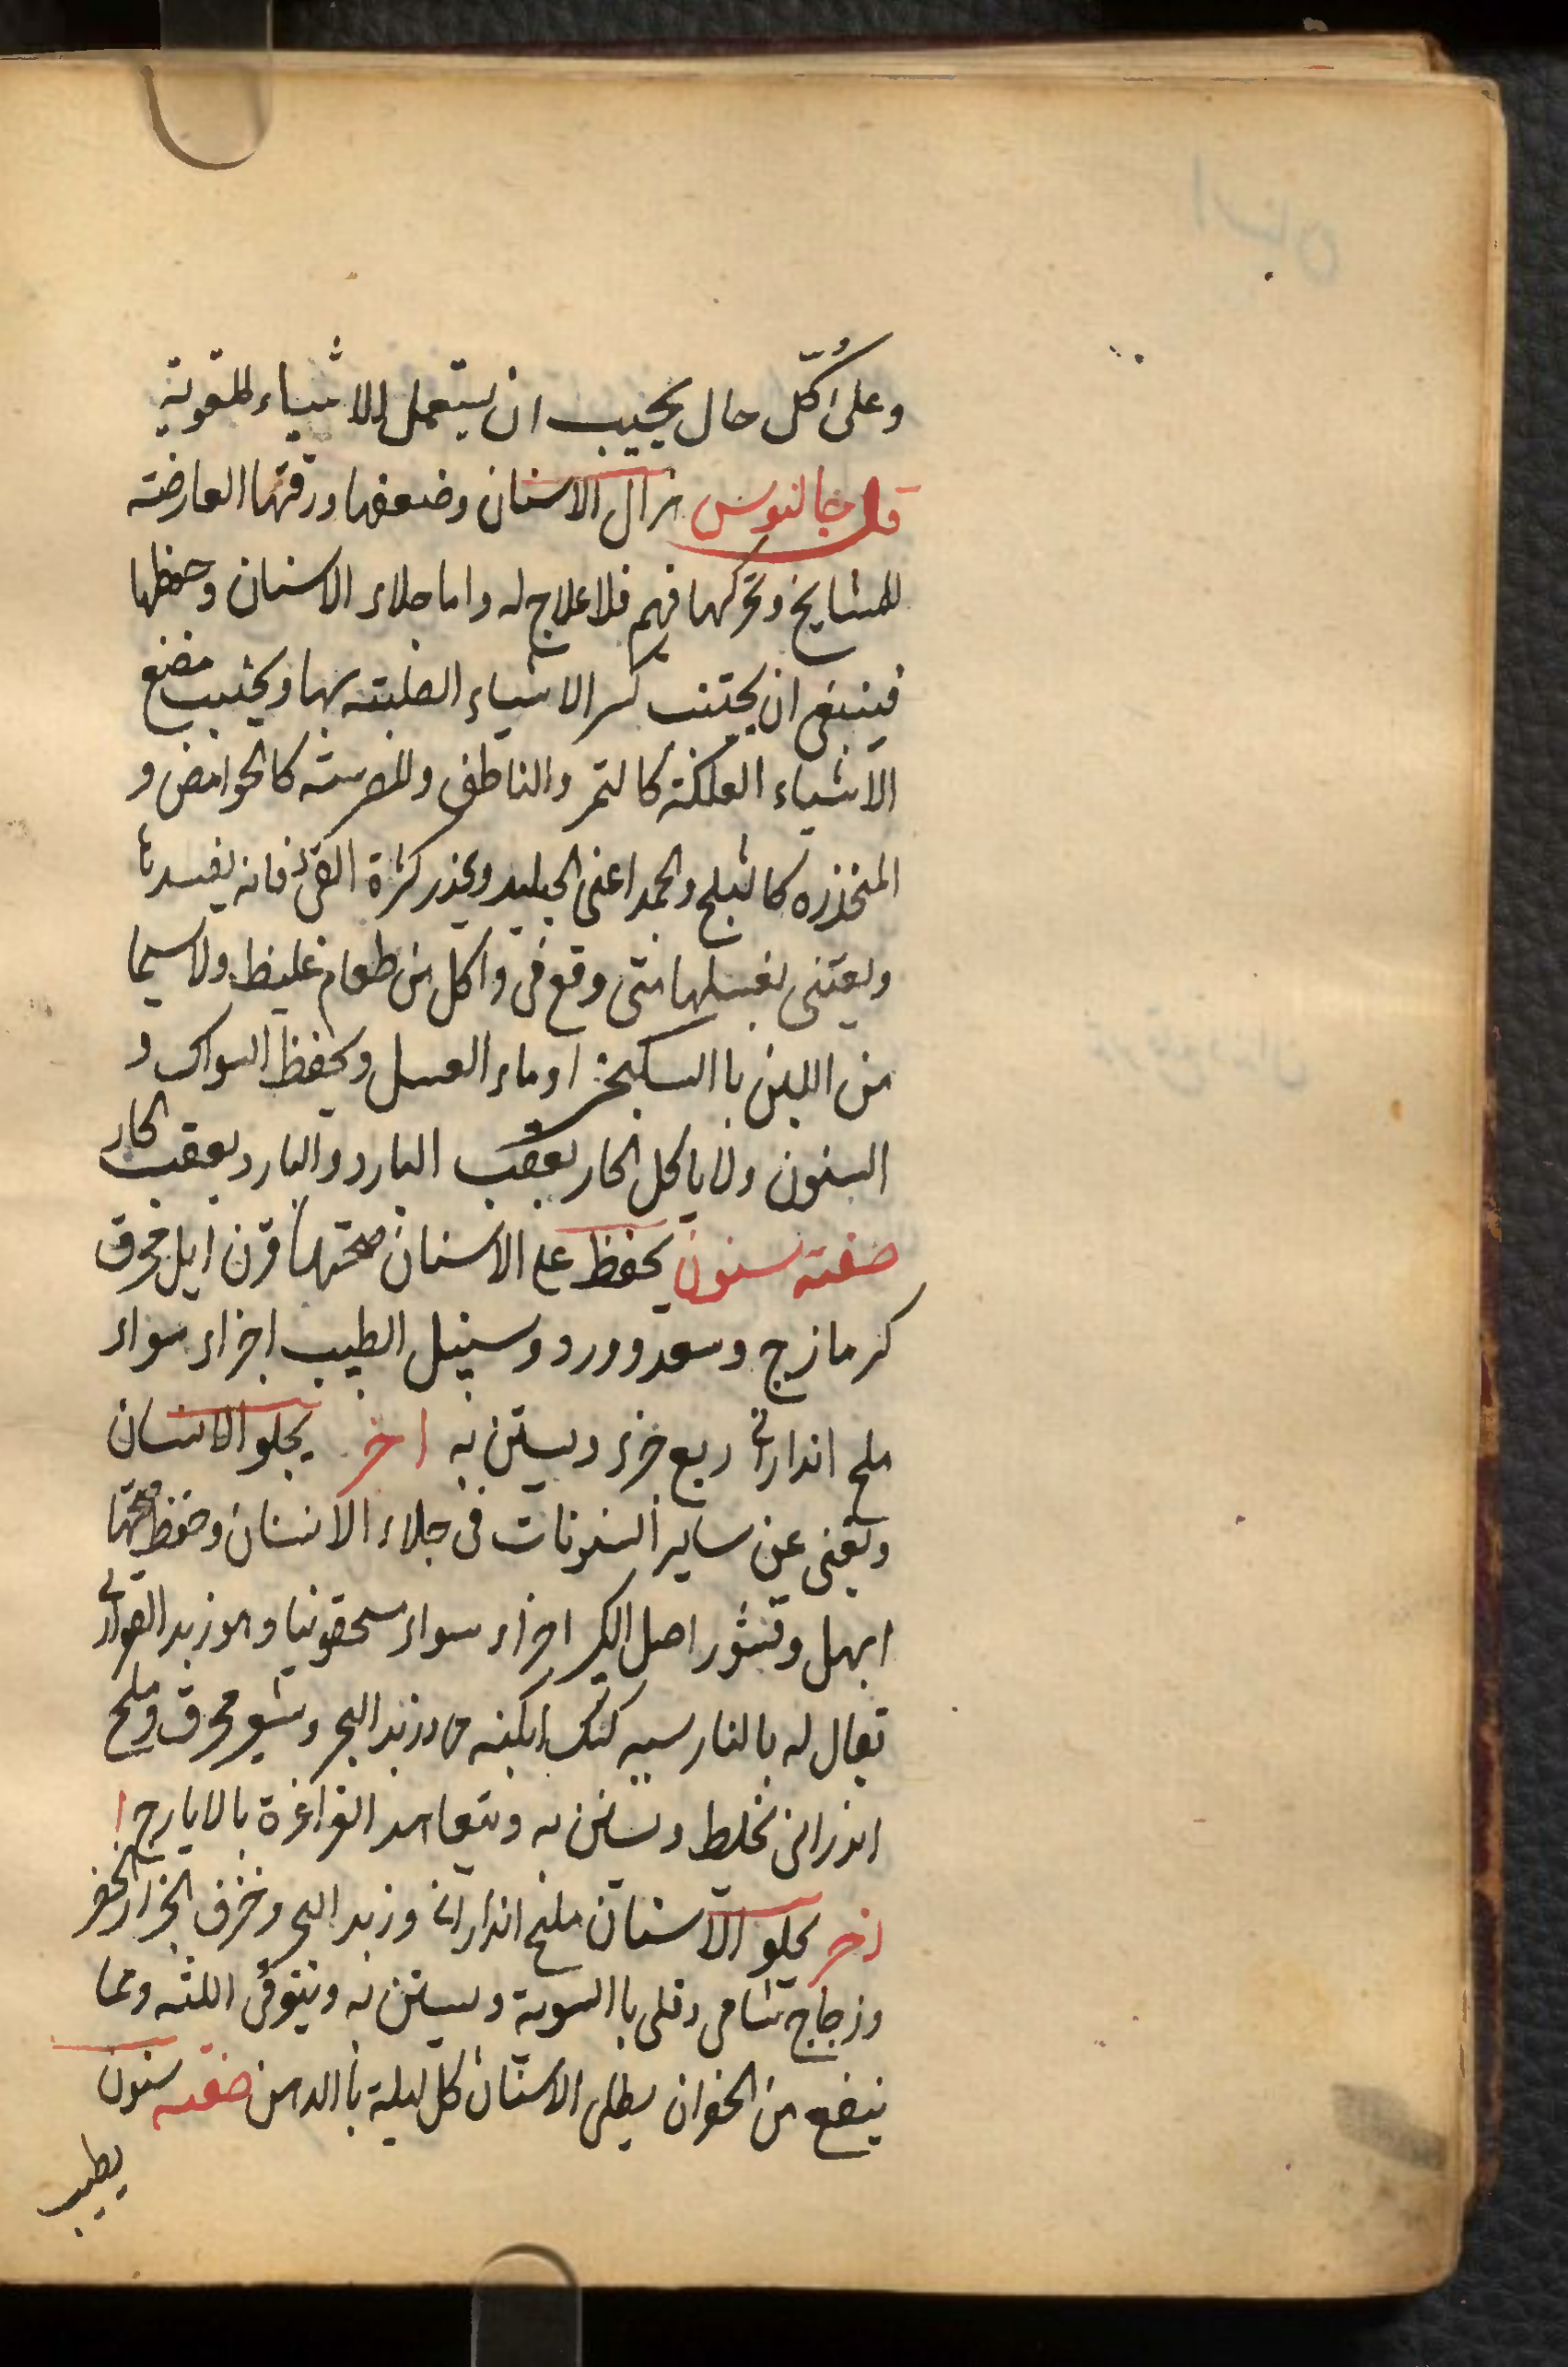 وعلى كل حال يجب ان يستعمل الاشياء المقوية
قال جالنوس هزال الاسنان وضعفها ورقتها العارضته
للمشايخ وتحركها فيهم فلا علاج له واما جلاء الاسنان وحفظها
فينبغى ان يجتنب كسر الاشياء الصلبته بها ويجتنب مضغ
الاشياء العلكته كالتمر والناطف والمضرسته كالحوامض و
المخدره كالثلج والجمد اعنى الجليد ويحذر كثرة القئ فانه يفسدها
ويعتنى بغسلها متى وقع قى واكل من طعام غليظ ولاسيما
من اللبن باالسكنجبين اوماء العسل ويحفظ السواك و
السنون ولا ياكل الحار بعقب البارد والبارد بعقب الحار
صفته سنون يحفظ على الاسنان صحتها قرن ايل محرق
كزمازج وسعد وورد وسنبل الطيب اجزاء سواء
ملح اندارانى ربع جزء ويستن به اخر يجلو الاسنان
ويغنى عن ساير السنونات فى جلاء الاسنان وحفظ صحتها
ابهل وقشور اصل الكبر اجزاء سواء مسحقونيا وهو زبد القوارير
تعال له بالفارسيه كفك ابكينه وزبد البحر وشعير محرق وملح
اندرانى تخلط ويستن به ويتعاهد الغراغرة بالايارج ا
اخر يجلو الاسنان ملح اندارانى وزبد البحر وخزف الجرار الخضر
وزجاج شامى وقلى باالسوية ويستن به ويتوقى اللثه ومما
ينفع من الحفران يطلى الاسنان كل ليلة باالدهن صفته سنون
يطيب